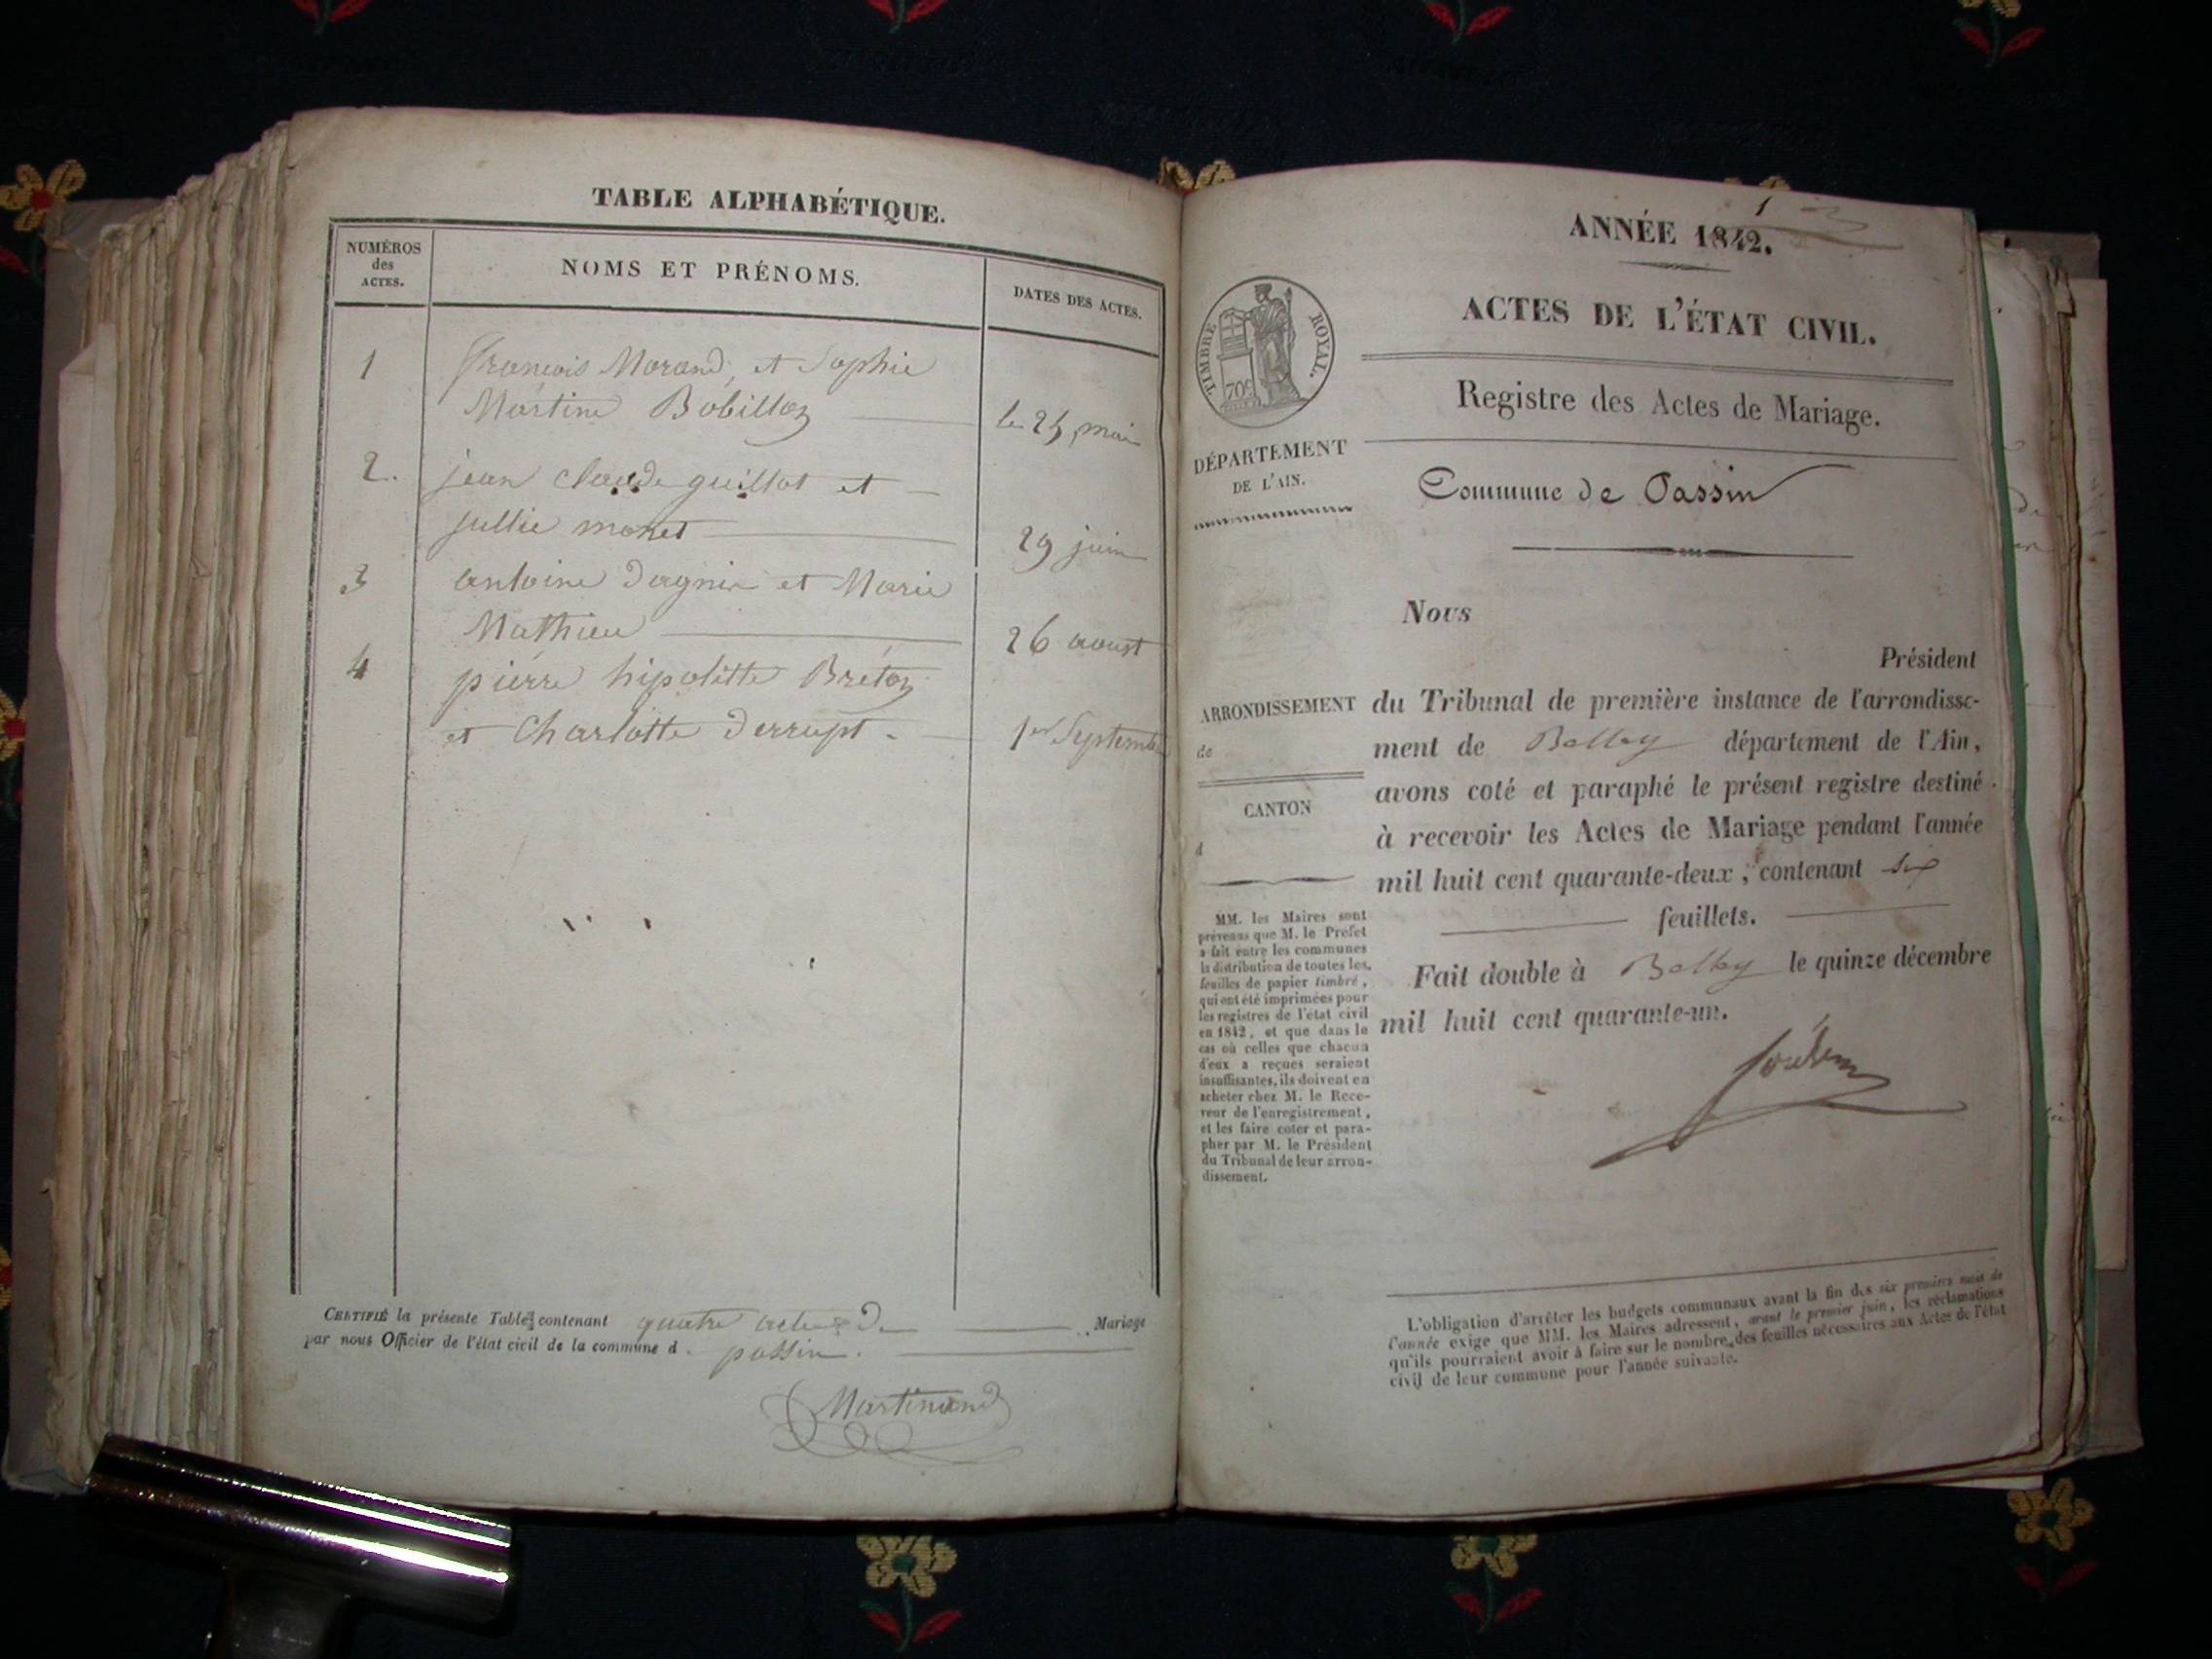 TABLE ALPHABÉTIQUE.
NUMÉROS
des
ACTES.
NOMS ET PRÉNOMS.
DATES DES ACTES.
1
françois Morand, et Sophie
Martine Bobillon
le 25 mai
2.
jean claude guillot et
jullie monet
29 juin
3
antoine Dagnin et Marie
Mathieu
26 aoust
4
pierre hipolitte Breton
et Charlotte Derrupt.
1er Septembre
CERTIFIÉ la présente Table contenant quatre actes de Mariage
par nous Officier de l'état civil de la commune d. passin.
Martinand
1
ANNÉE 1842.
ACTES DE L'ÉTAT CIVIL.
Registre des Actes de Mariage.
TIMBRE ROYAL.
70c
DÉPARTEMENT
DE L'AIN.
Commune de Passin
ARRONDISSEMENT
de
CANTON
d
MM. les Maires sont
prévenus que M. le Préfet
a fait entre les communes
la distribution de toutes les
feuilles de papier timbré,
qui ont été imprimées pour
les registres de l'état civil
en 1842, et que dans le
cas où celles que chacun
d'eux a reçues seraient
insuffisantes, ils doivent en
acheter chez M. le Rece-
veur de l'enregistrement,
et les faire coter et para-
pher par M. le Président
du Tribunal de leur arron-
dissement.
Nous
Président
du Tribunal de première instance de l'arrondisse-
ment de Belley département de l'Ain,
avons coté et paraphé le présent registre destiné
à recevoir les Actes de Mariage pendant l'année
mil huit cent quarante-deux, contenant six
feuillets.
Fait double à Belley le quinze décembre
mil huit cent quarante-un.
L'obligation d'arrêter les budgets communaux avant la fin des six premiers mois de
l'année exige que MM. les Maires adressent, avant le premier juin, les réclamations
qu'ils pourraient avoir à faire sur le nombre des feuilles nécessaires aux Actes de l'état
civil de leur commune pour l'année suivante.